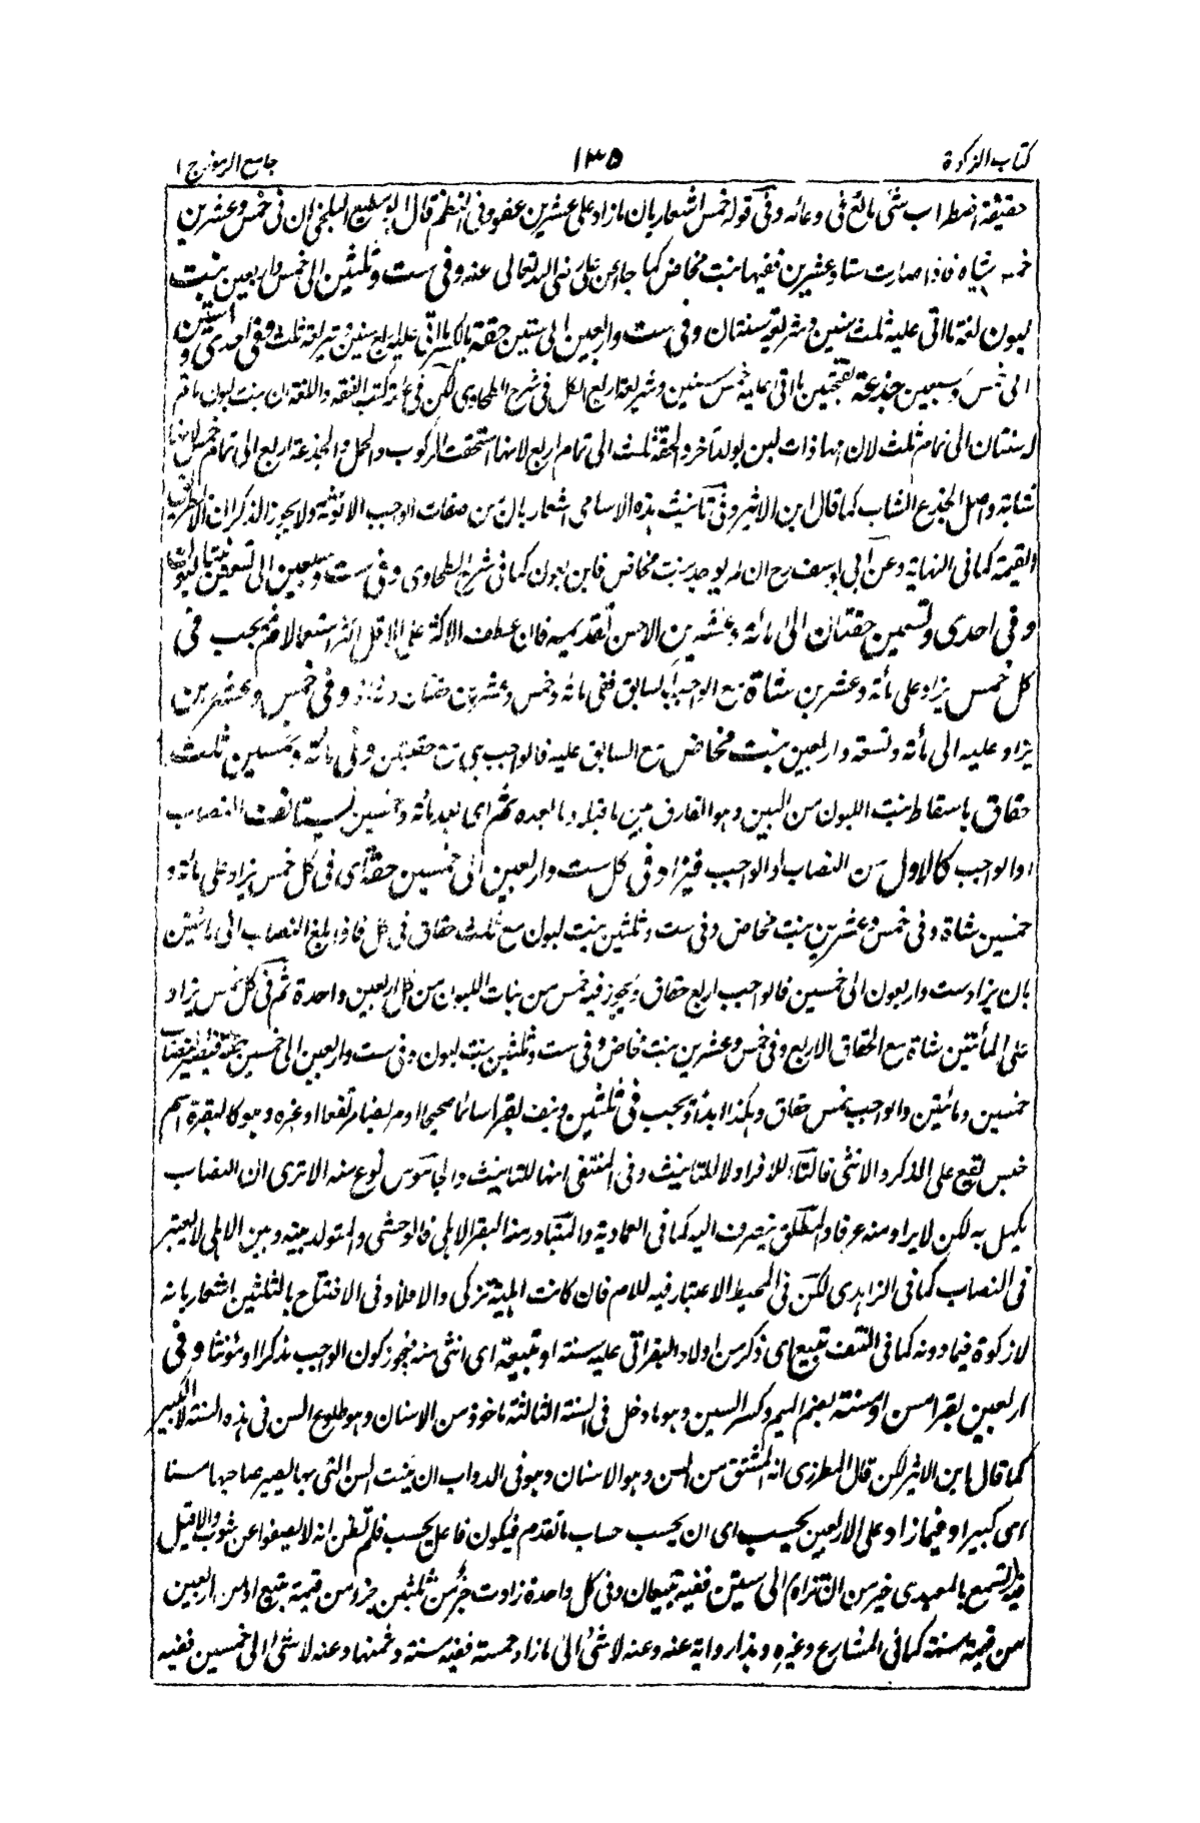 كتاب الزكوة ١٣٥ جامع الرموز ج ١
حقيقة اضطراب شئ مائع فى وعائه وفى قوله خمس اشعار بان ما زاد على عشرين عفو وفى النظم قال ابو مطيع البلخى ان فى خمس وعشرين
خمس شياه فاذا صارت ستا وعشرين ففيها بنت مخاض كما جاء عن على رضى الله تعالى عنه وفى ست وثلثين الى خمس واربعين بنت
لبون لغة ما اتى عليه ثلث سنين وشريعة سنتان وفى ست واربعين الى ستين حقة بالكسر ما اتى عليه اربع سنين وشريعة ثلث وفى احدى وستين
الى خمس وسبعين جذعة بفتحتين ما اتى عليه خمس سنين وشريعة اربع الكل فى شرح الطحاوى لكن فى عامة كتب الفقه واللغة ان بنت لبون ما تم
له سنتان الى تمام ثلث لان امها ذات لبن بولد آخر والحقة ثلث الى تمام اربع لانها استحقت الركوب والحمل والجذعة اربع الى تمام خمس لانها
شابة واصل الجذع الشاب كما قال ابن الاثير وفى تانيث هذه الاسامى اشعار بان من صفات الواجب الانوثة ولا يجوز الذكران الا بطريق
القيمة كما فى النهاية وعن ابى يوسف رح ان لم يوجد بنت مخاض فابن لبون كما فى شرح الطحاوى وفى ست وسبعين الى تسعين بنتا لبون
وفى احدى وتسعين حقتان الى مائة وعشرين الاحسن تقديمه فان عطف الاكثر على الاقل اكثر استعمالا ثم يجب فى
كل خمس يزاد على مائة وعشرين شاة مع الواجب السابق ففى مائة وخمس وعشرين حقتان وشاة وفى خمس وعشرين
يزاد عليه الى مائة وتسعة واربعين بنت مخاض مع السابق عليه فالواجب هى مع حقتين وفى مائة وخمسين ثلث
حقاق باسقاط بنت اللبون من البين وهو الفارق بين ما قبله وما بعده ثم اى بعد مائة وخمسين يستانف النصاب
او الواجب كالاول من النصاب او الواجب فيزاد فى كل ست واربعين الى خمسين حقة اى فى كل خمس يزاد على مائة و
خمسين شاة وفى خمس وعشرين بنت مخاض وفى ست وثلثين بنت لبون مع ثلث حقاق فى كل فاذا بلغ النصاب الى مائتين
بان يزاد ست واربعون الى خمسين فالواجب اربع حقاق ويجوز فيه خمس من بنات اللبون من كل اربعين واحدة ثم فى كل خمس يزاد
على المائتين شاة مع الحقاق الاربع وفى خمس وعشرين بنت مخاض وفى ست وثلثين بنت لبون وفى ست واربعين الى خمسين حقة فيصير النصاب
خمسين ومائتين والواجب خمس حقاق وهكذا ابدا ويجب فى ثلثين ونيف بقرا سائما صحيحا او مريضا مرتفعا او غيره وهو كالبقرة اسم
جنس يقع على الذكر والانثى فالتاء للافراد لا للتانيث وفى المنتقى انها للتانيث والجاموس نوع منه الا ترى ان النصاب
يكمل به لكن لا يراد منه عرفا والمطلق ينصرف اليه كما فى العمادية والمتبادر منه البقر الاهلى فالوحشى والمتولد بينه وبين الاهلى لا يعتبر
فى النصاب كما فى الزاهدى لكن فى المحيط الاعتبار فيه للام فان كانت اهلية تزكى والا فلا وفى الافتتاح بالثلثين اشعار بانه
لا زكوة فيما دونه كما فى النتف تبيع اى ذكر من اولاد البقر اتى عليه سنة او تبيعة اى انثى منه فيجوز كون الواجب مذكرا او مؤنثا وفى
اربعين بقرا مسن او مسنة بضم الميم وكسر السين وهو ما دخل فى السنة الثالثة ماخوذ من الاسنان وهو طلوع السن فى هذه السنة لا الكبير
كما قال ابن الاثير لكن قال المطرزى انه المشتق من السن وهو الاسنان وهو فى الدواب ان ينبت السن التى بها يصير صاحبها مسنا
اى كبيرا وفيما زاد على الاربعين يحسب اى ان يحسب حساب ما تقدم فيكون فاعل يحسب فلم تظن انه لا يصفوا عن شوب والا قيل
تسمع بالمعيدى خير من ان تراه الى ستين ففيه تبيعان وفى كل واحدة زادت جزء من ثلثين جزء من قيمة تبيع او من اربعين
من قيمة مسنة كما فى المشارع وغيره وهذا رواية عنه وعنه لا شئ الى ما زاد خمسة ففيه مسنة وثمنها وعنه لا شئ الى خمسين ففيه